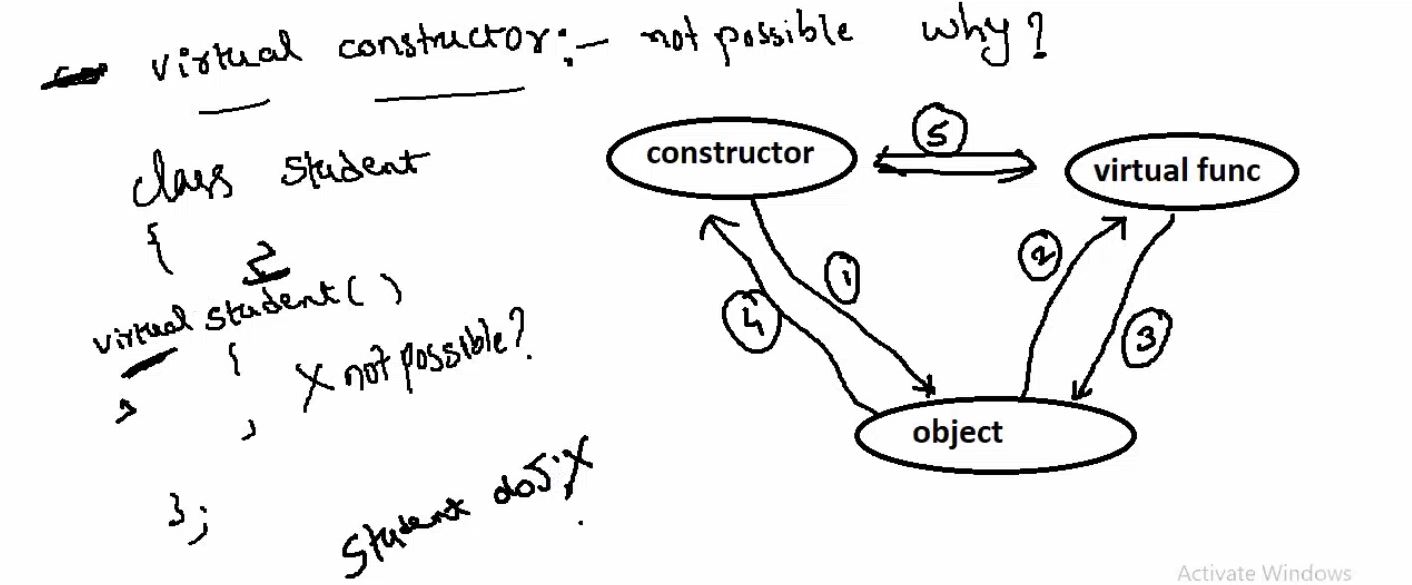 virtual constructor:- not possible why?
class student
{
2
virtual student( )
{
X not possible?
}
};
student
constructor
5
virtual func
1
2
4
3
object
Activate Windows